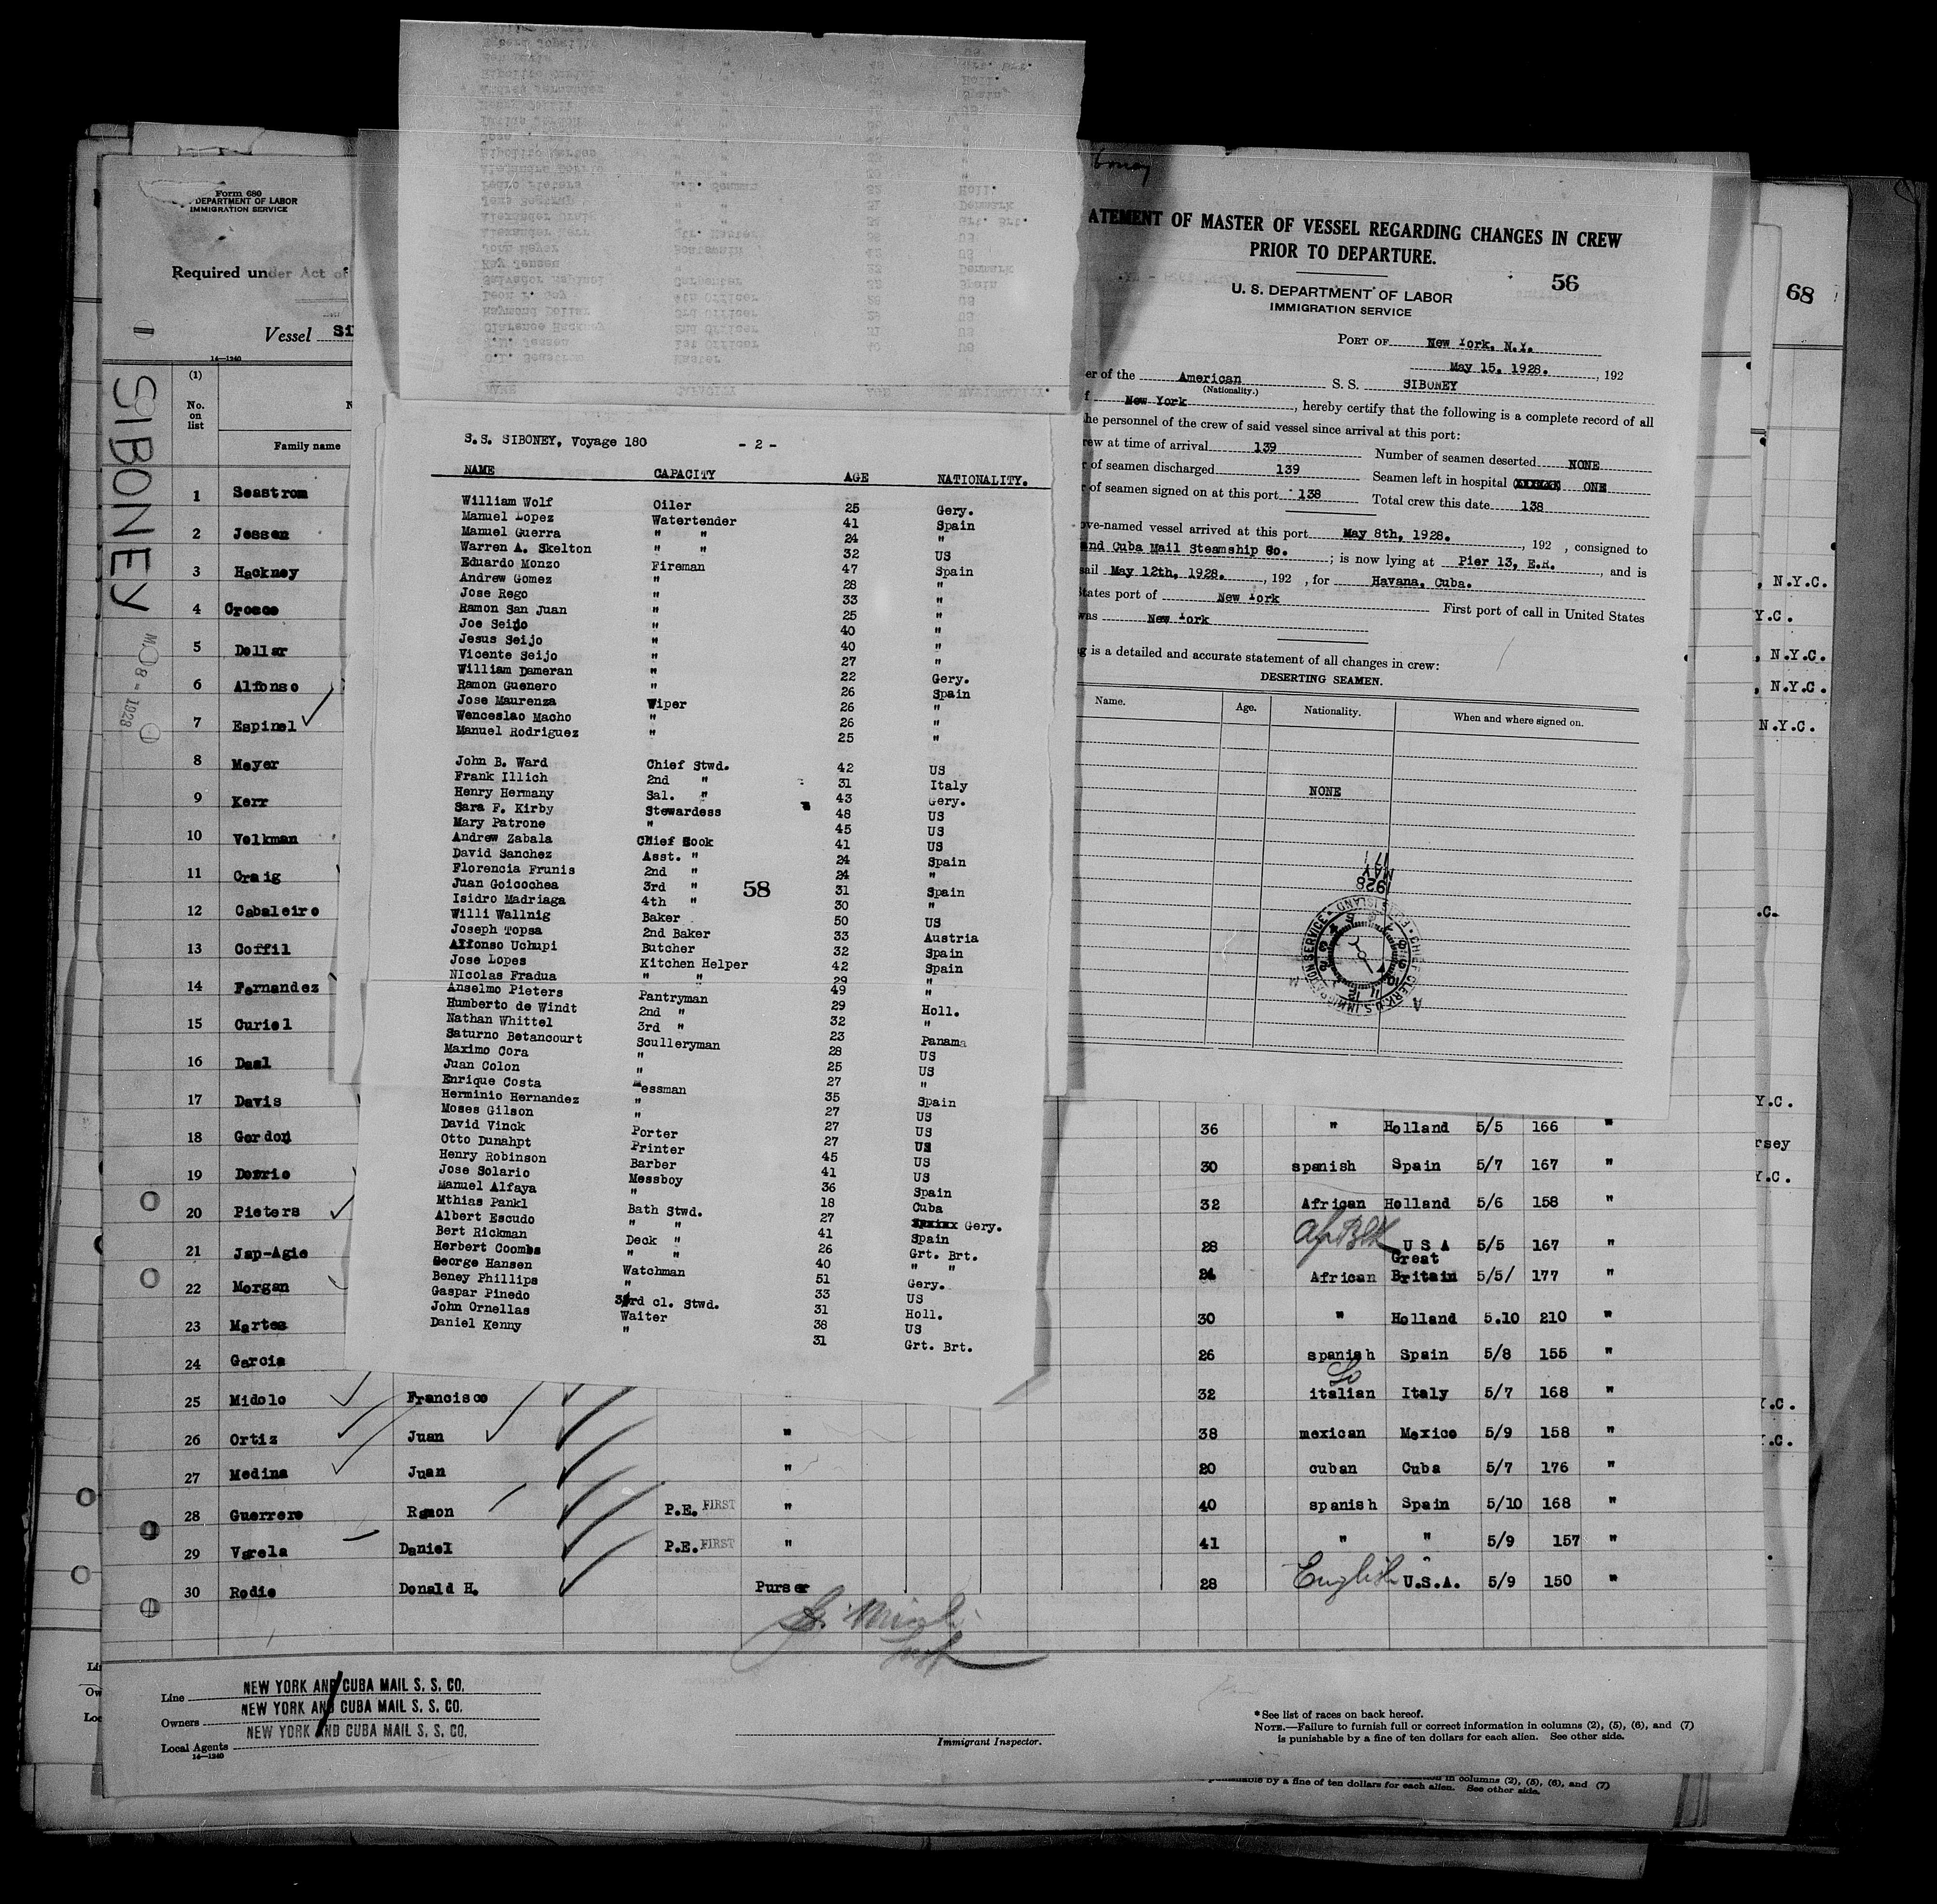 Form 680
DEPARTMENT OF LABOR
IMMIGRATION SERVICE
Required under Act of
Vessel
14-1240
SIBONEY
(1)
No. on list
Family name
1 Seastrom
2 Jessen
3 Hackney
4 Crosco
5 Dollar
6 Alfonso
7 Espinel
8 Meyer
9 Kerr
10 Volkman
11 Craig
12 Cabaleiro
13 Coffil
14 Fernandez
15 Curiel
16 Deal
17 Davis
18 Gordon 36 " Holland 5/5 166 "
19 Dorrie 30 spanish Spain 5/7 167 "
20 Pieters 32 African Holland 5/6 158 "
21 Jap-Agie 28 Af Blk U S A 5/5 167 "
22 Morgan 24 African Great Britain 5/5/ 177 "
23 Martes 30 " Holland 5.10 210 "
24 Garcia 26 spanish Spain 5/8 155 "
25 Midolo Francisco " 32 So italian Italy 5/7 168 "
26 Ortiz Juan " 38 mexican Mexico 5/9 158 "
27 Medina Juan " 20 cuban Cuba 5/7 176 "
28 Guerrero Ramon P.E. FIRST " 40 spanish Spain 5/10 168 "
29 Varela Daniel P.E. FIRST " 41 " " 5/9 157 "
30 Redie Donald H. Purser 28 English U.S.A. 5/9 150 "
Line NEW YORK AND CUBA MAIL S. S. CO.
Owners NEW YORK AND CUBA MAIL S. S. CO.
Local Agents NEW YORK AND CUBA MAIL S. S. CO.
14-1240
Immigrant Inspector.
*See list of races on back hereof.
NOTE.—Failure to furnish full or correct information in columns (2), (5), (6), and (7)
is punishable by a fine of ten dollars for each alien. See other side.
S.S. SIBONEY, Voyage 180 - 2 -
NAME CAPACITY AGE NATIONALITY.
William Wolf Oiler 25 Gery.
Manuel Lopez Watertender 41 Spain
Manuel Guerra " " 24 "
Warren A. Skelton " " 32 US
Eduardo Monzo Fireman 47 Spain
Andrew Gomez " 28 "
Jose Rego " 33 "
Ramon San Juan " 25 "
Joe Seijo " 40 "
Jesus Seijo " 40 "
Vicente Seijo " 27 "
William Dameran " 22 Gery.
Ramon Guenero " 26 Spain
Jose Maurenza Wiper 26 "
Wenceslao Macho " 26 "
Manuel Rodriguez " 25 "
John B. Ward Chief Stwd. 42 US
Frank Illich 2nd " 31 Italy
Henry Hermany Sal. " 43 Gery.
Sara F. Kirby Stewardess 48 US
Mary Patrone " 45 US
Andrew Zabala Chief Cook 41 US
David Sanchez Asst. " 24 Spain
Florencia Frunis 2nd " 24 "
Juan Goicochea 3rd " 31 Spain
Isidro Madriaga 4th " 30 "
58
Willi Wallnig Baker 50 US
Joseph Topsa 2nd Baker 33 Austria
Alfonso Uchupi Butcher 32 Spain
Jose Lopes Kitchen Helper 42 Spain
NIcolas Fradua " " 29 "
Anselmo Pieters Pantryman 49 "
Humberto de Windt 2nd " 29 Holl.
Nathan Whittel 3rd " 32 "
Saturno Betancourt Sculleryman 23 Panama
Maximo Cora " 28 US
Juan Colon " 25 US
Enrique Costa Messman 27 "
Herminio Hernandez " 35 Spain
Moses Gilson " 27 US
David Vinck Porter 27 US
Otto Dunahpt Printer 27 US
Henry Robinson Barber 45 US
Jose Solario Messboy 41 US
Manuel Alfaya " 36 Spain
Mthias Pankl Bath Stwd. 18 Cuba
Albert Escudo " " 27 Gery.
Bert Rickman Deck " 41 Spain
Herbert Coombs " " 26 Grt. Brt.
George Hansen Watchman 40 " "
Beney Phillips " 51 Gery.
Gaspar Pinedo 3rd cl. Stwd. 33 US
John Ornellas Waiter 31 Holl.
Daniel Kenny " 38 US
31 Grt. Brt.
ATEMENT OF MASTER OF VESSEL REGARDING CHANGES IN CREW
PRIOR TO DEPARTURE.
56
U. S. DEPARTMENT OF LABOR
IMMIGRATION SERVICE
PORT OF New York, N.Y.
May 15, 1928. , 192
er of the American S. S. SIBONEY
(Nationality.)
f New York , hereby certify that the following is a complete record of all
he personnel of the crew of said vessel since arrival at this port:
rew at time of arrival 139 Number of seamen deserted NONE
r of seamen discharged 139 Seamen left in hospital ONE
r of seamen signed on at this port 138 Total crew this date 138
ove-named vessel arrived at this port May 8th, 1928. , 192 , consigned to
and Cuba Mail Steamship Co. ; is now lying at Pier 13, E.R. , and is
sail May 12th, 1928. , 192 , for Havana, Cuba.
States port of New York First port of call in United States
was New York
g is a detailed and accurate statement of all changes in crew:
DESERTING SEAMEN.
Name. Age. Nationality. When and where signed on.
NONE
1928 MAY 17
68
, N.Y.C.
Y.C.
, N.Y.C.
, N.Y.C.
N.Y.C.
.C.
Y.C.
rsey
Y.C.
Y.C.
Y.C.
in columns (2), (5), (6), and (7)
by a fine of ten dollars for each alien. See other side.